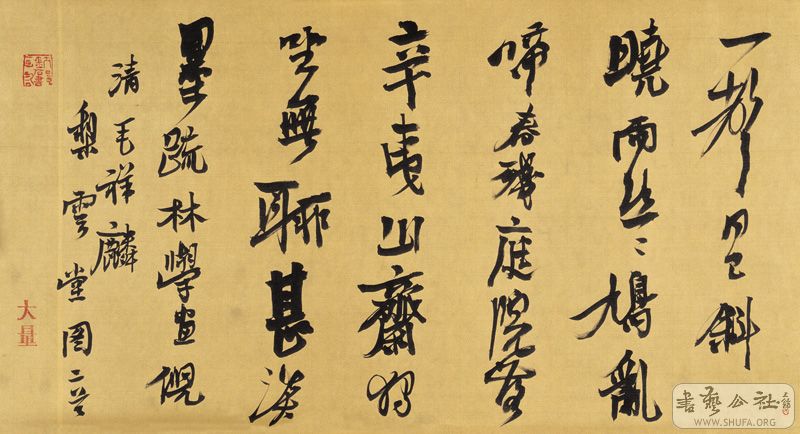 一 斜
曉雨絲〻鳩亂
啼春殘庭院落
辛夷山齋獨
坐無聊甚淡
墨疏林學畫倪
清毛祥麟
梨雲堂圖二首
大量
書藝公社
WWW.SHUFA.ORG